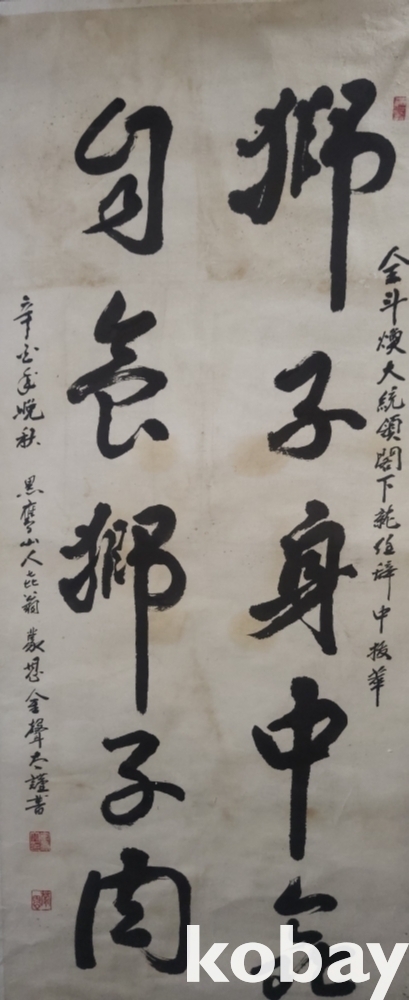 全斗煥大統領閣下就任辞中拔萃
獅子身中蟲
自食獅子肉
辛酉年晩秋 黒鷹山人 翁 金聲大謹書
kobay